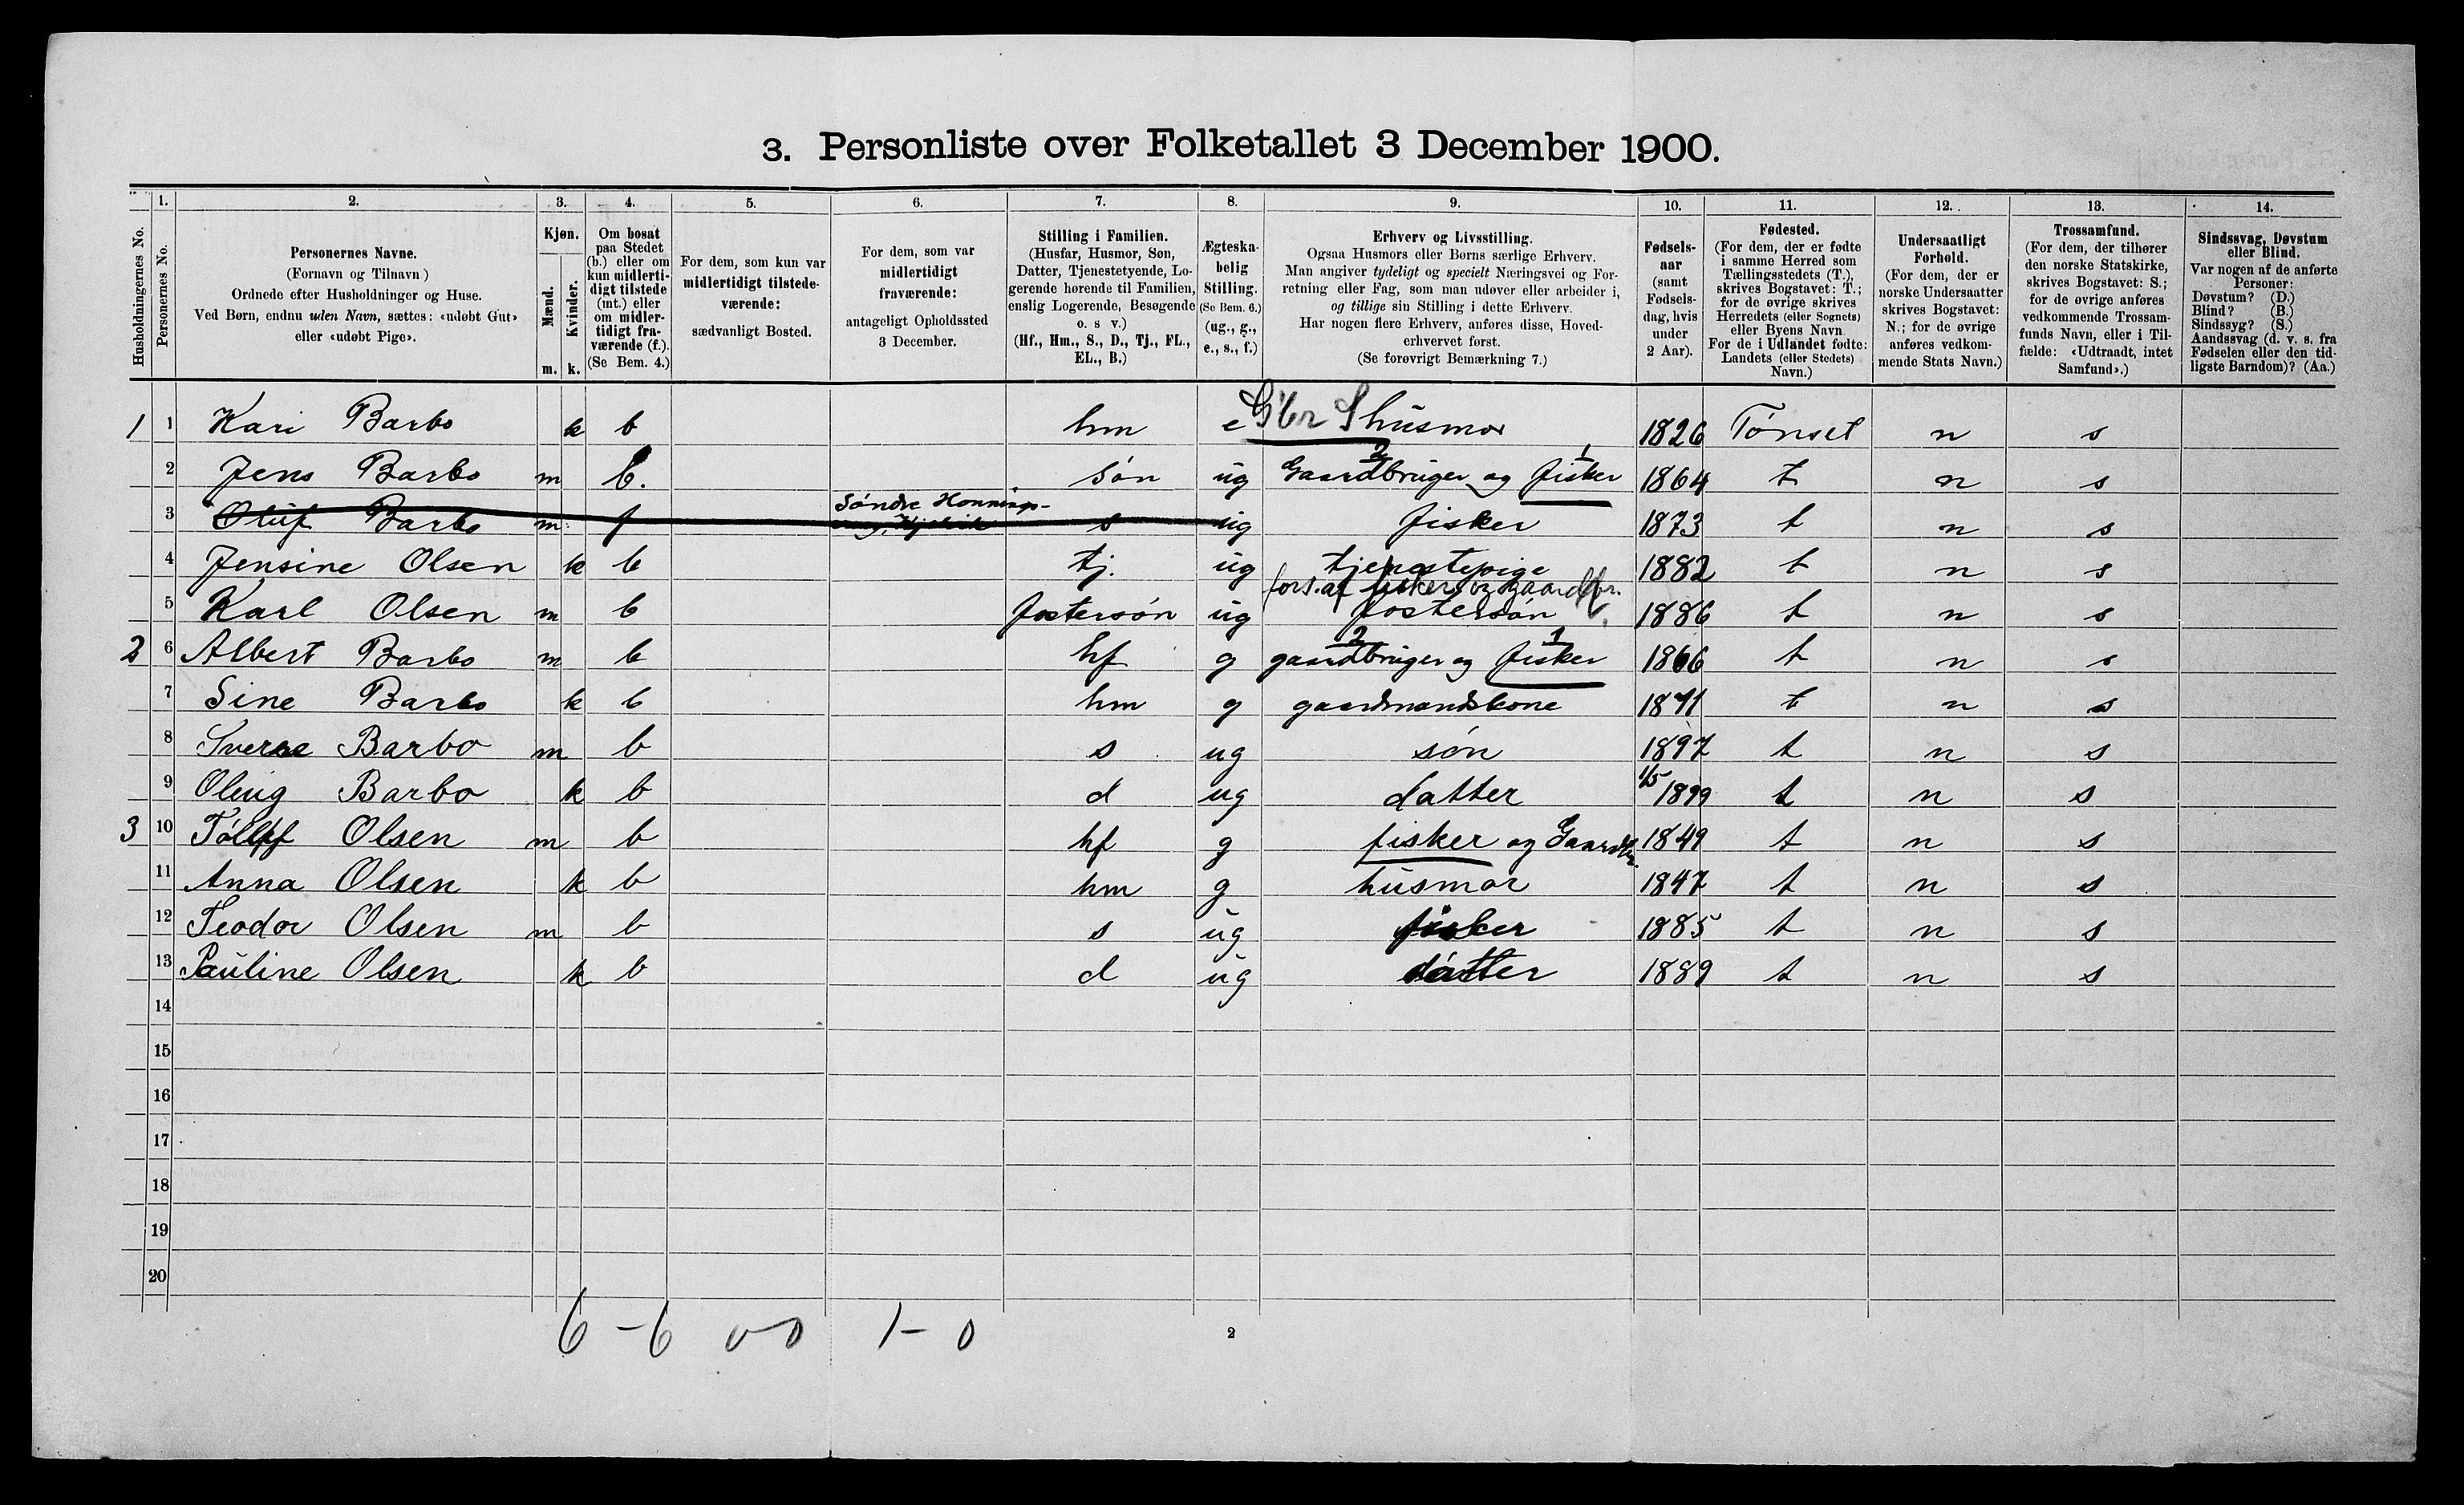 3. Personliste over Folketallet 3 December 1900.
Husholdningernes No.
1.
Personernes No.
2.
Personernes Navne.
(Fornavn og Tilnavn)
Ordnede efter Husholdninger og Huse.
Ved Børn, endnu uden Navn, sættes: «udøbt Gut»
eller «udøbt Pige».
3.
Kjøn.
Mænd.
Kvinder.
m. k.
4.
Om bosat
paa Stedet
(b.) eller om
kun midlerti-
digt tilstede
(mt.) eller
om midler-
tidigt fra-
værende (f.).
(Se Bem. 4.)
5.
For dem, som kun var
midlertidigt tilstede-
værende:
sædvanligt Bosted.
6.
For dem, som var
midlertidigt
fraværende:
antageligt Opholdssted
3 December.
7.
Stilling i Familien.
(Husfar, Husmor, Søn,
Datter, Tjenestetyende, Lo-
gerende hørende til Familien,
enslig Logerende, Besøgende
o. s v.)
(Hf., Hm., S., D., Tj., FL.,
EL., B.)
8.
Ægteska-
belig
Stilling.
(Se Bem. 6.)
(ug., g.,
e., s., f.)
9.
Erhverv og Livsstilling.
Ogsaa Husmors eller Børns særlige Erhverv.
Man angiver tydeligt og specielt Næringsvei og For-
retning eller Fag, som man udøver eller arbeider i,
og tillige sin Stilling i dette Erhverv.
Har nogen flere Erhverv, anføres disse, Hoved-
erhvervet først.
(Se forøvrigt Bemærkning 7.)
10.
Fødsels-
aar
(samt
Fødsels-
dag, hvis
under
2 Aar).
11.
Fødested.
(For dem, der er fødte
i samme Herred som
Tællingsstedets (T.),
skrives Bogstavet: T.;
for de øvrige skrives
Herredets (eller Sognets)
eller Byens Navn
For de i Udlandet fødte:
Landets (eller Stedets)
Navn.)
12.
Undersaatligt
Forhold.
(For dem, der er
norske Undersaatter
skrives Bogstavet:
N.; for de øvrige
anføres vedkom-
mende Stats Navn.)
13.
Trossamfund.
(For dem, der tilhører
den norske Statskirke,
skrives Bogstavet: S.;
for de øvrige anføres
vedkommende Trossam-
funds Navn, eller i Til-
fælde: «Udtraadt, intet
Samfund».)
14.
Sindssvag, Døvstum
eller Blind.
Var nogen af de anførte
Personer:
Døvstum? (D.)
Blind? (B.)
Sindssyg? (S.)
Aandssvag (d. v. s. fra
Fødselen eller den tid-
ligste Barndom)? (Aa.)
1 1 Kari Barbo k b hm e Gbr S husmor 1826 Tønset n s
2 Jens Barbo m b. søn ug Gaardbruger og fisker 1864 t n s
2 1
3 Oluf Barbo m f Søndre Honnings- s ug fisker 1873 t n s
4 Jensine Olsen k b tj. ug tjenestepige 1882 t n s
fors. af fisker og gaardbr.
5 Karl Olsen m b fostersøn ug fostersøn 1886 t n s
2 6 Albert Barbo m b hf g gaardbruger og fisker 1866 t n s
2 1
7 Sine Barbo k b hm g gaardmandskone 1871 t n s
8 Sverre Barbo m b s ug søn 1897 t n s
9 Oleug Barbo k b d ug datter 1/5 1899 t n s
3 10 Tollef Olsen m b hf g fisker og Gaardbr. 1849 t n s
11 Anna Olsen k b hm g husmor 1847 t n s
12 Teodor Olsen m b s ug fisker 1885 t n s
13 Pauline Olsen k b d ug datter 1889 t n s
14
15
16
17
18
19
20
6 - 6 0-0 1-0
2